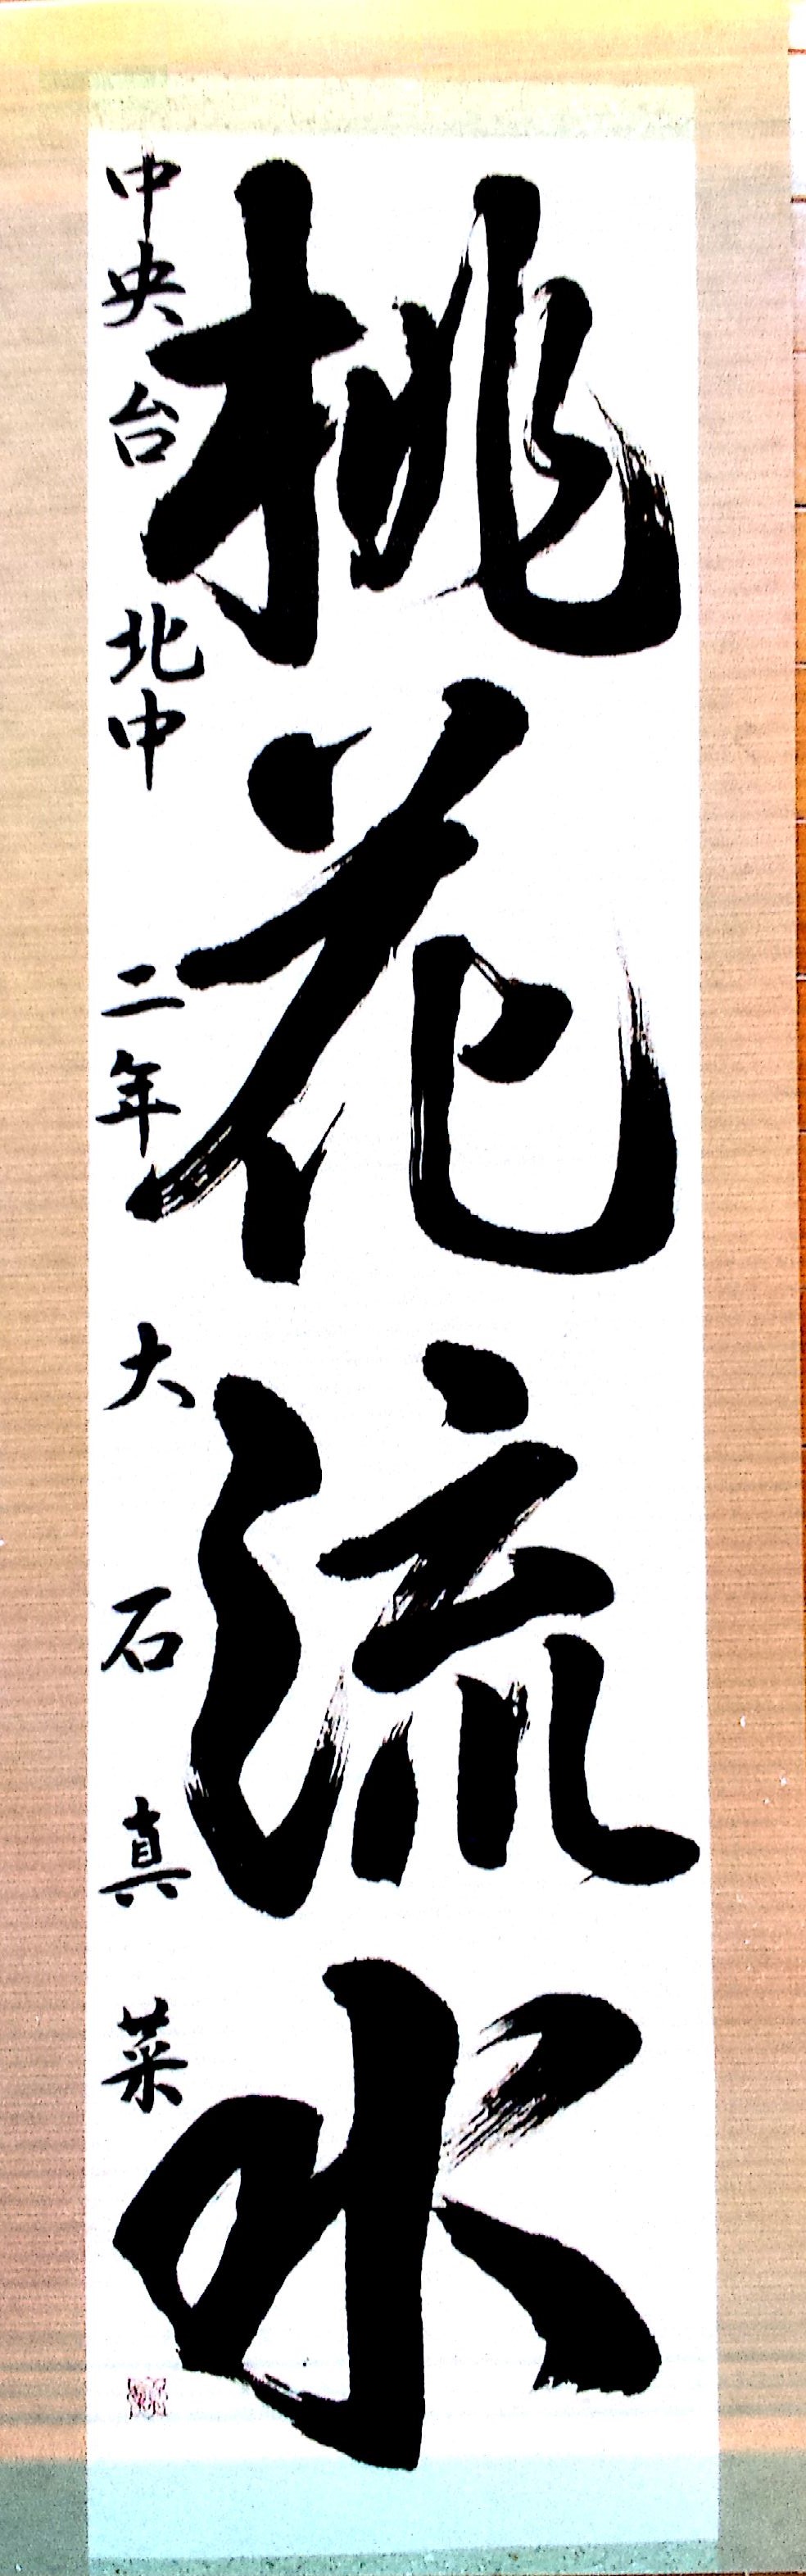 桃花流水
中央台北中 二年 大石真菜